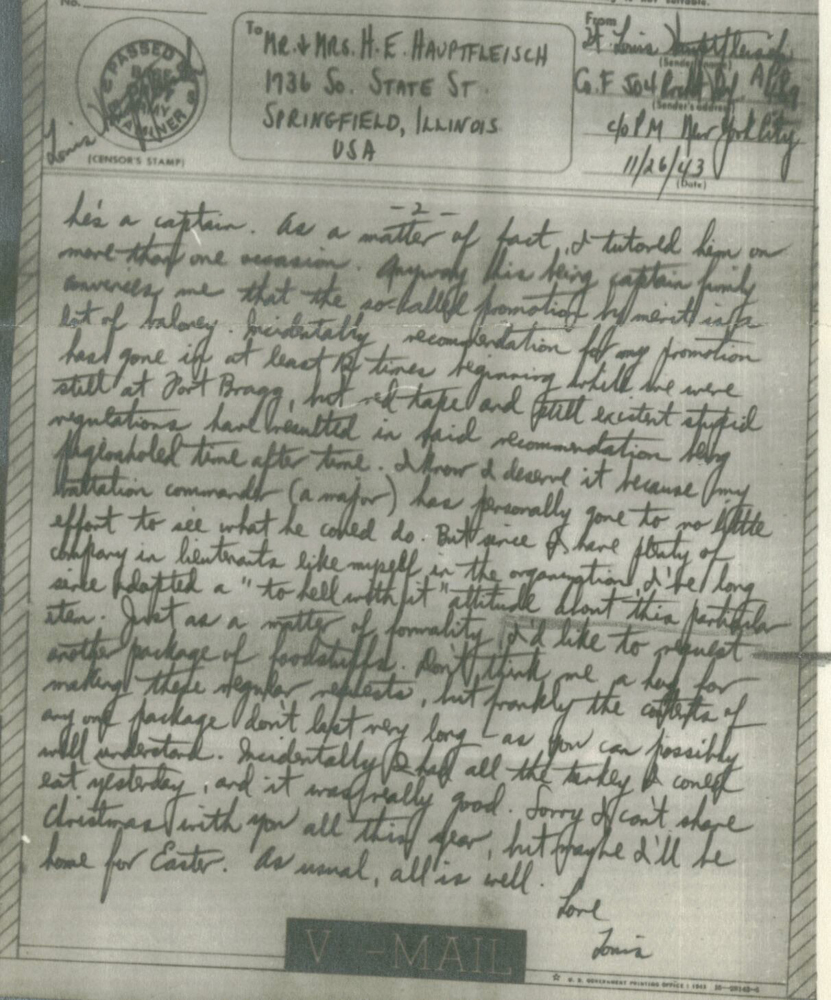 No.
PASSED BY
EXAMINER
Louis
(CENSOR'S STAMP)
To
MR. & MRS. H. E. HAUPTFLEISCH
1736 SO. STATE ST.
SPRINGFIELD, ILLINOIS
USA
From
Lt. Louis Hauptfleisch
(Sender's name)
Co. F 504
(Sender's address)
c/o PM New York City
11/26/43
(Date)
- 2 -
he's a captain. As a matter of fact, I tutored him on
more than one occasion. Anyway this being captain firmly
convinces me that the so-called promotion by merit is a
lot of baloney. Incidentally recommendation for my promotion
has gone in at least 12 times beginning while we were
still at Fort Bragg, but red tape and still existent stupid
regulations have resulted in said recommendation being
pigeonholed time after time. I know I deserve it because my
battalion commander (a major) has personally gone to no little
effort to see what he could do. But since I have plenty of
company in lieutenants like myself in the organization, I've long
since adopted a "to hell with it" attitude about this particular
item. Just as a matter of formality I'd like to request
another package of foodstuffs. Don't think me a hog for
making these regular requests, but frankly the contents of
any one package don't last very long - as you can possibly
well understand. Incidentally I had all the turkey I could
eat yesterday, and it was really good. Sorry I can't share
Christmas with you all this year, but maybe I'll be
home for Easter. As usual, all is well.
Love
Louis
V - MAIL
U. S. GOVERNMENT PRINTING OFFICE : 1943